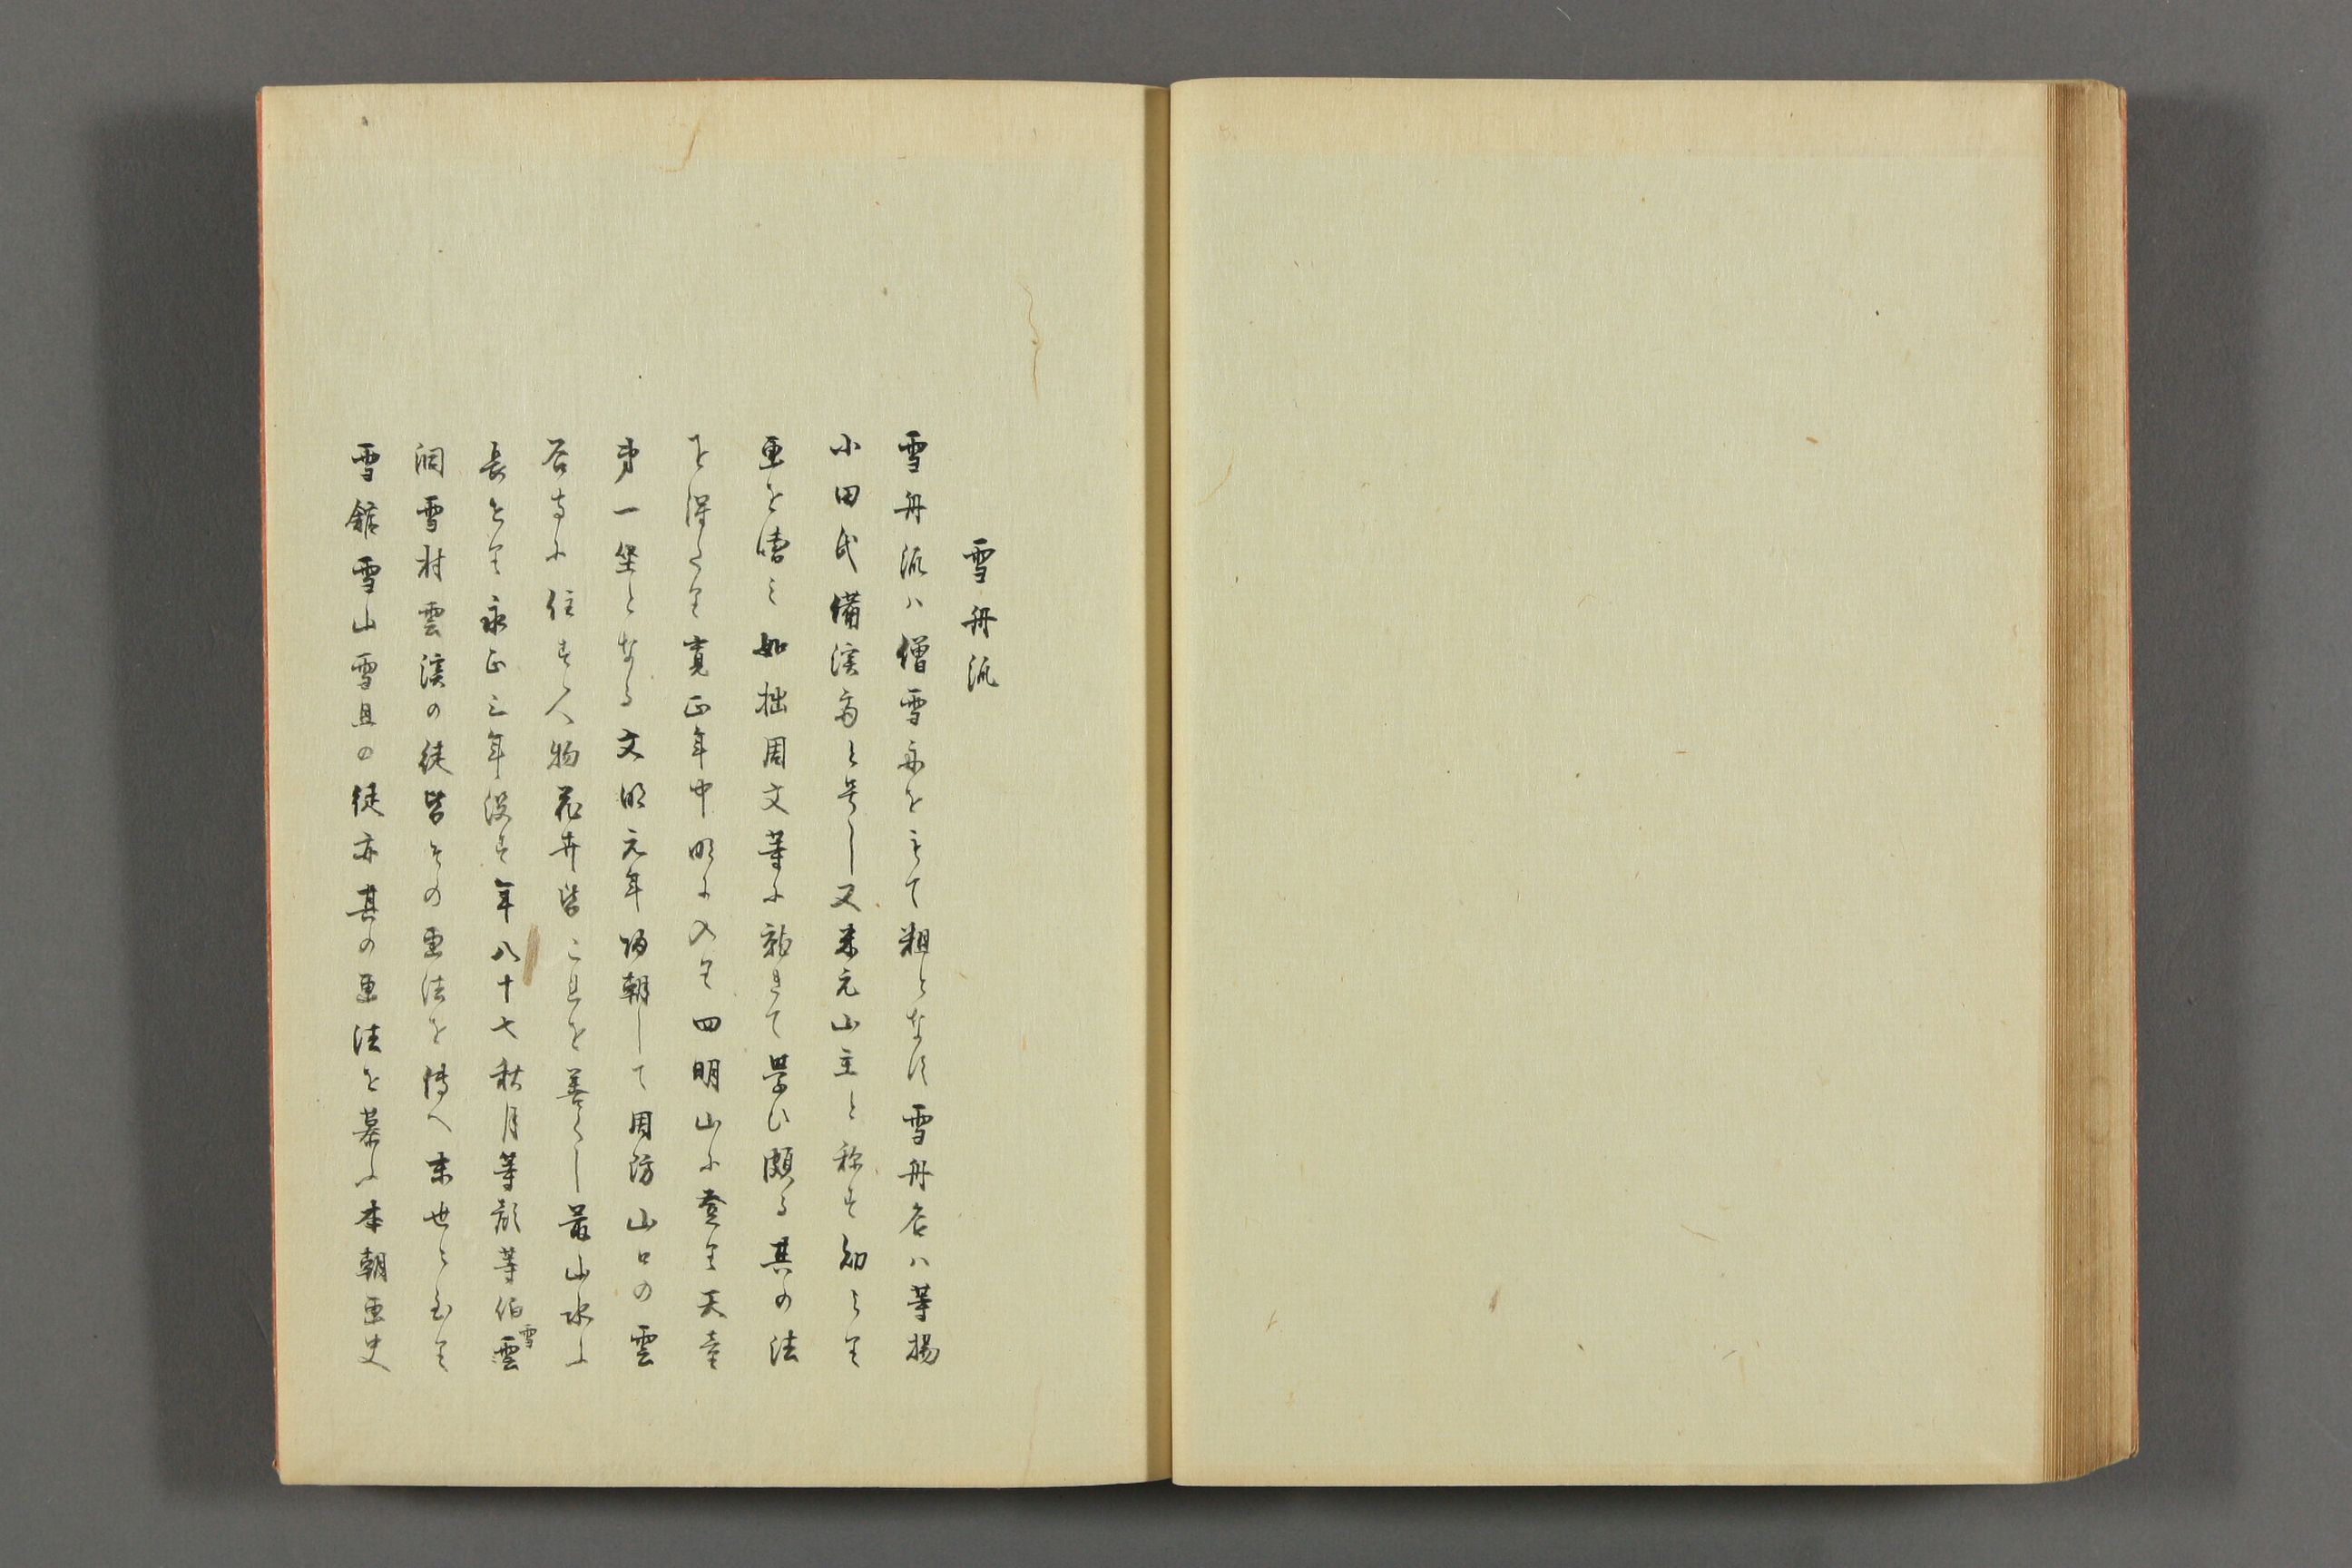 雪舟流
雪舟流ハ僧雪舟をもて粗となす雪舟名ハ等揚
小田氏備渓斎と号し又米元山主と称す幼より
画を嗜ミ如拙周文等に就きて学ひ頗る其の法
を得たり寛正年中明に入り四明山に登り天童
第一坐となる文明元年帰朝して周防山口の雲
谷寺に住す人物花卉皆これを善くし最山水に
長せり永正三年没す年八十七秋月等顔等伯雪雲
洞雪村雲渓の徒皆その画法を傳へ末世に至り
雪舘雪山雪且の徒亦其の画法を慕ふ本朝画史